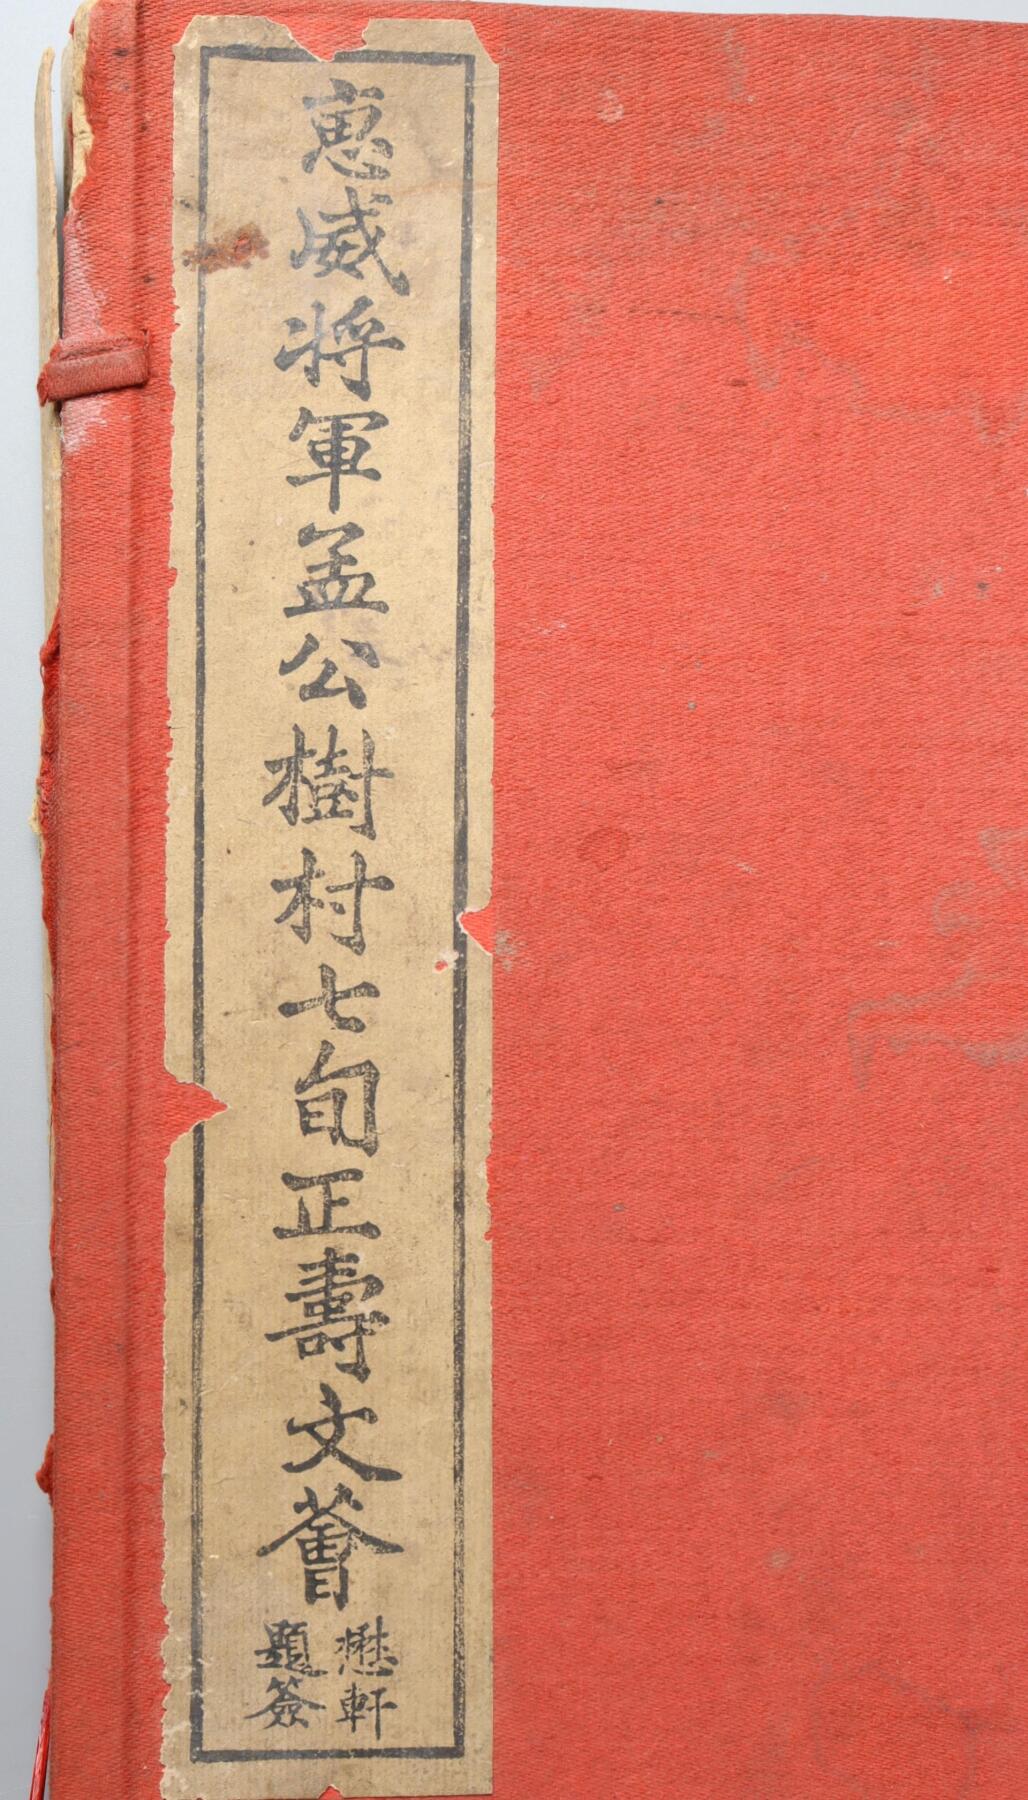 惠威将軍孟公樹村七旬正壽文薈
懋軒
題簽